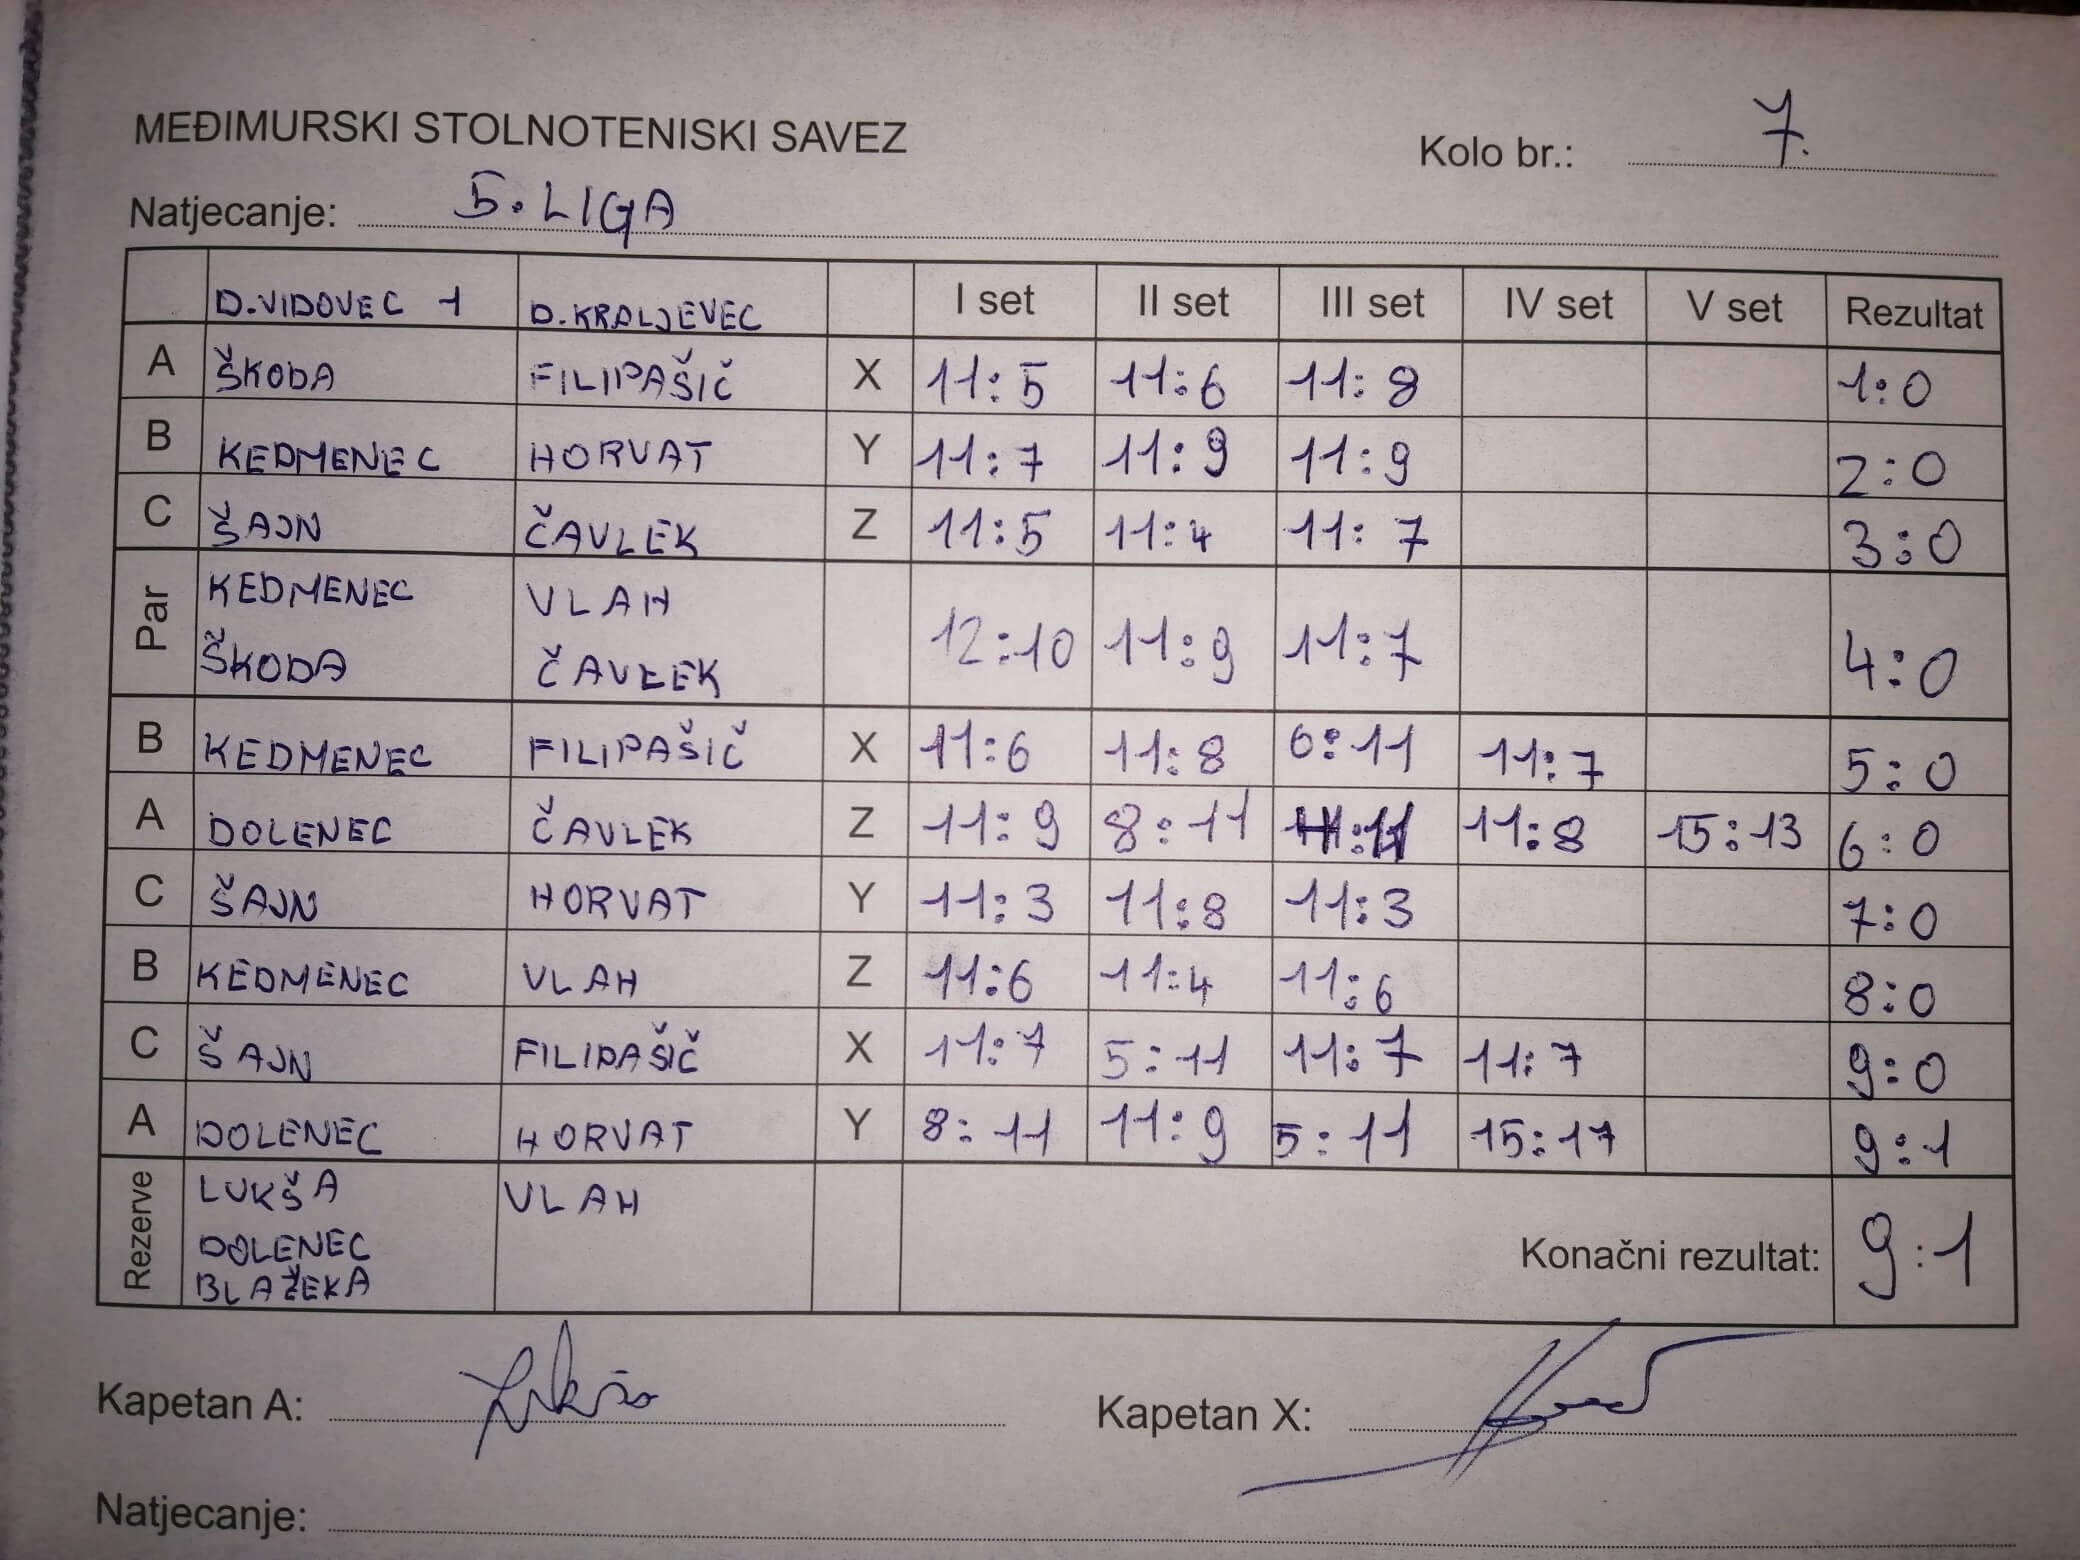 MEĐIMURSKI STOLNOTENISKI SAVEZ
Kolo br.: 7.
Natjecanje: 5. LIGA
D.VIDOVEC 1 D.KRALJEVEC I set II set III set IV set V set Rezultat
A ŠKODA FILIPAŠIČ X 11:5 11:6 11:8 1:0
B KEDMENEC HORVAT Y 11:7 11:9 11:9 2:0
C ŠAJN ČAVLEK Z 11:5 11:4 11:7 3:0
Par KEDMENEC VLAH 12:10 11:9 11:7 4:0
ŠKODA ČAVLEK
B KEDMENEC FILIPAŠIČ X 11:6 11:8 6:11 11:7 5:0
A DOLENEC ČAVLEK Z 11:9 8:11 :11 11:8 15:13 6:0
C ŠAJN HORVAT Y 11:3 11:8 11:3 7:0
B KEDMENEC VLAH Z 11:6 11:4 11:6 8:0
C ŠAJN FILIPAŠIČ X 11:7 5:11 11:7 11:7 9:0
A DOLENEC HORVAT Y 8:11 11:9 5:11 15:17 9:1
Rezerve LUKŠA VLAH
DOLENEC
BLAŽEKA
Konačni rezultat: 9:1
Kapetan A: Lukša
Kapetan X:
Natjecanje: